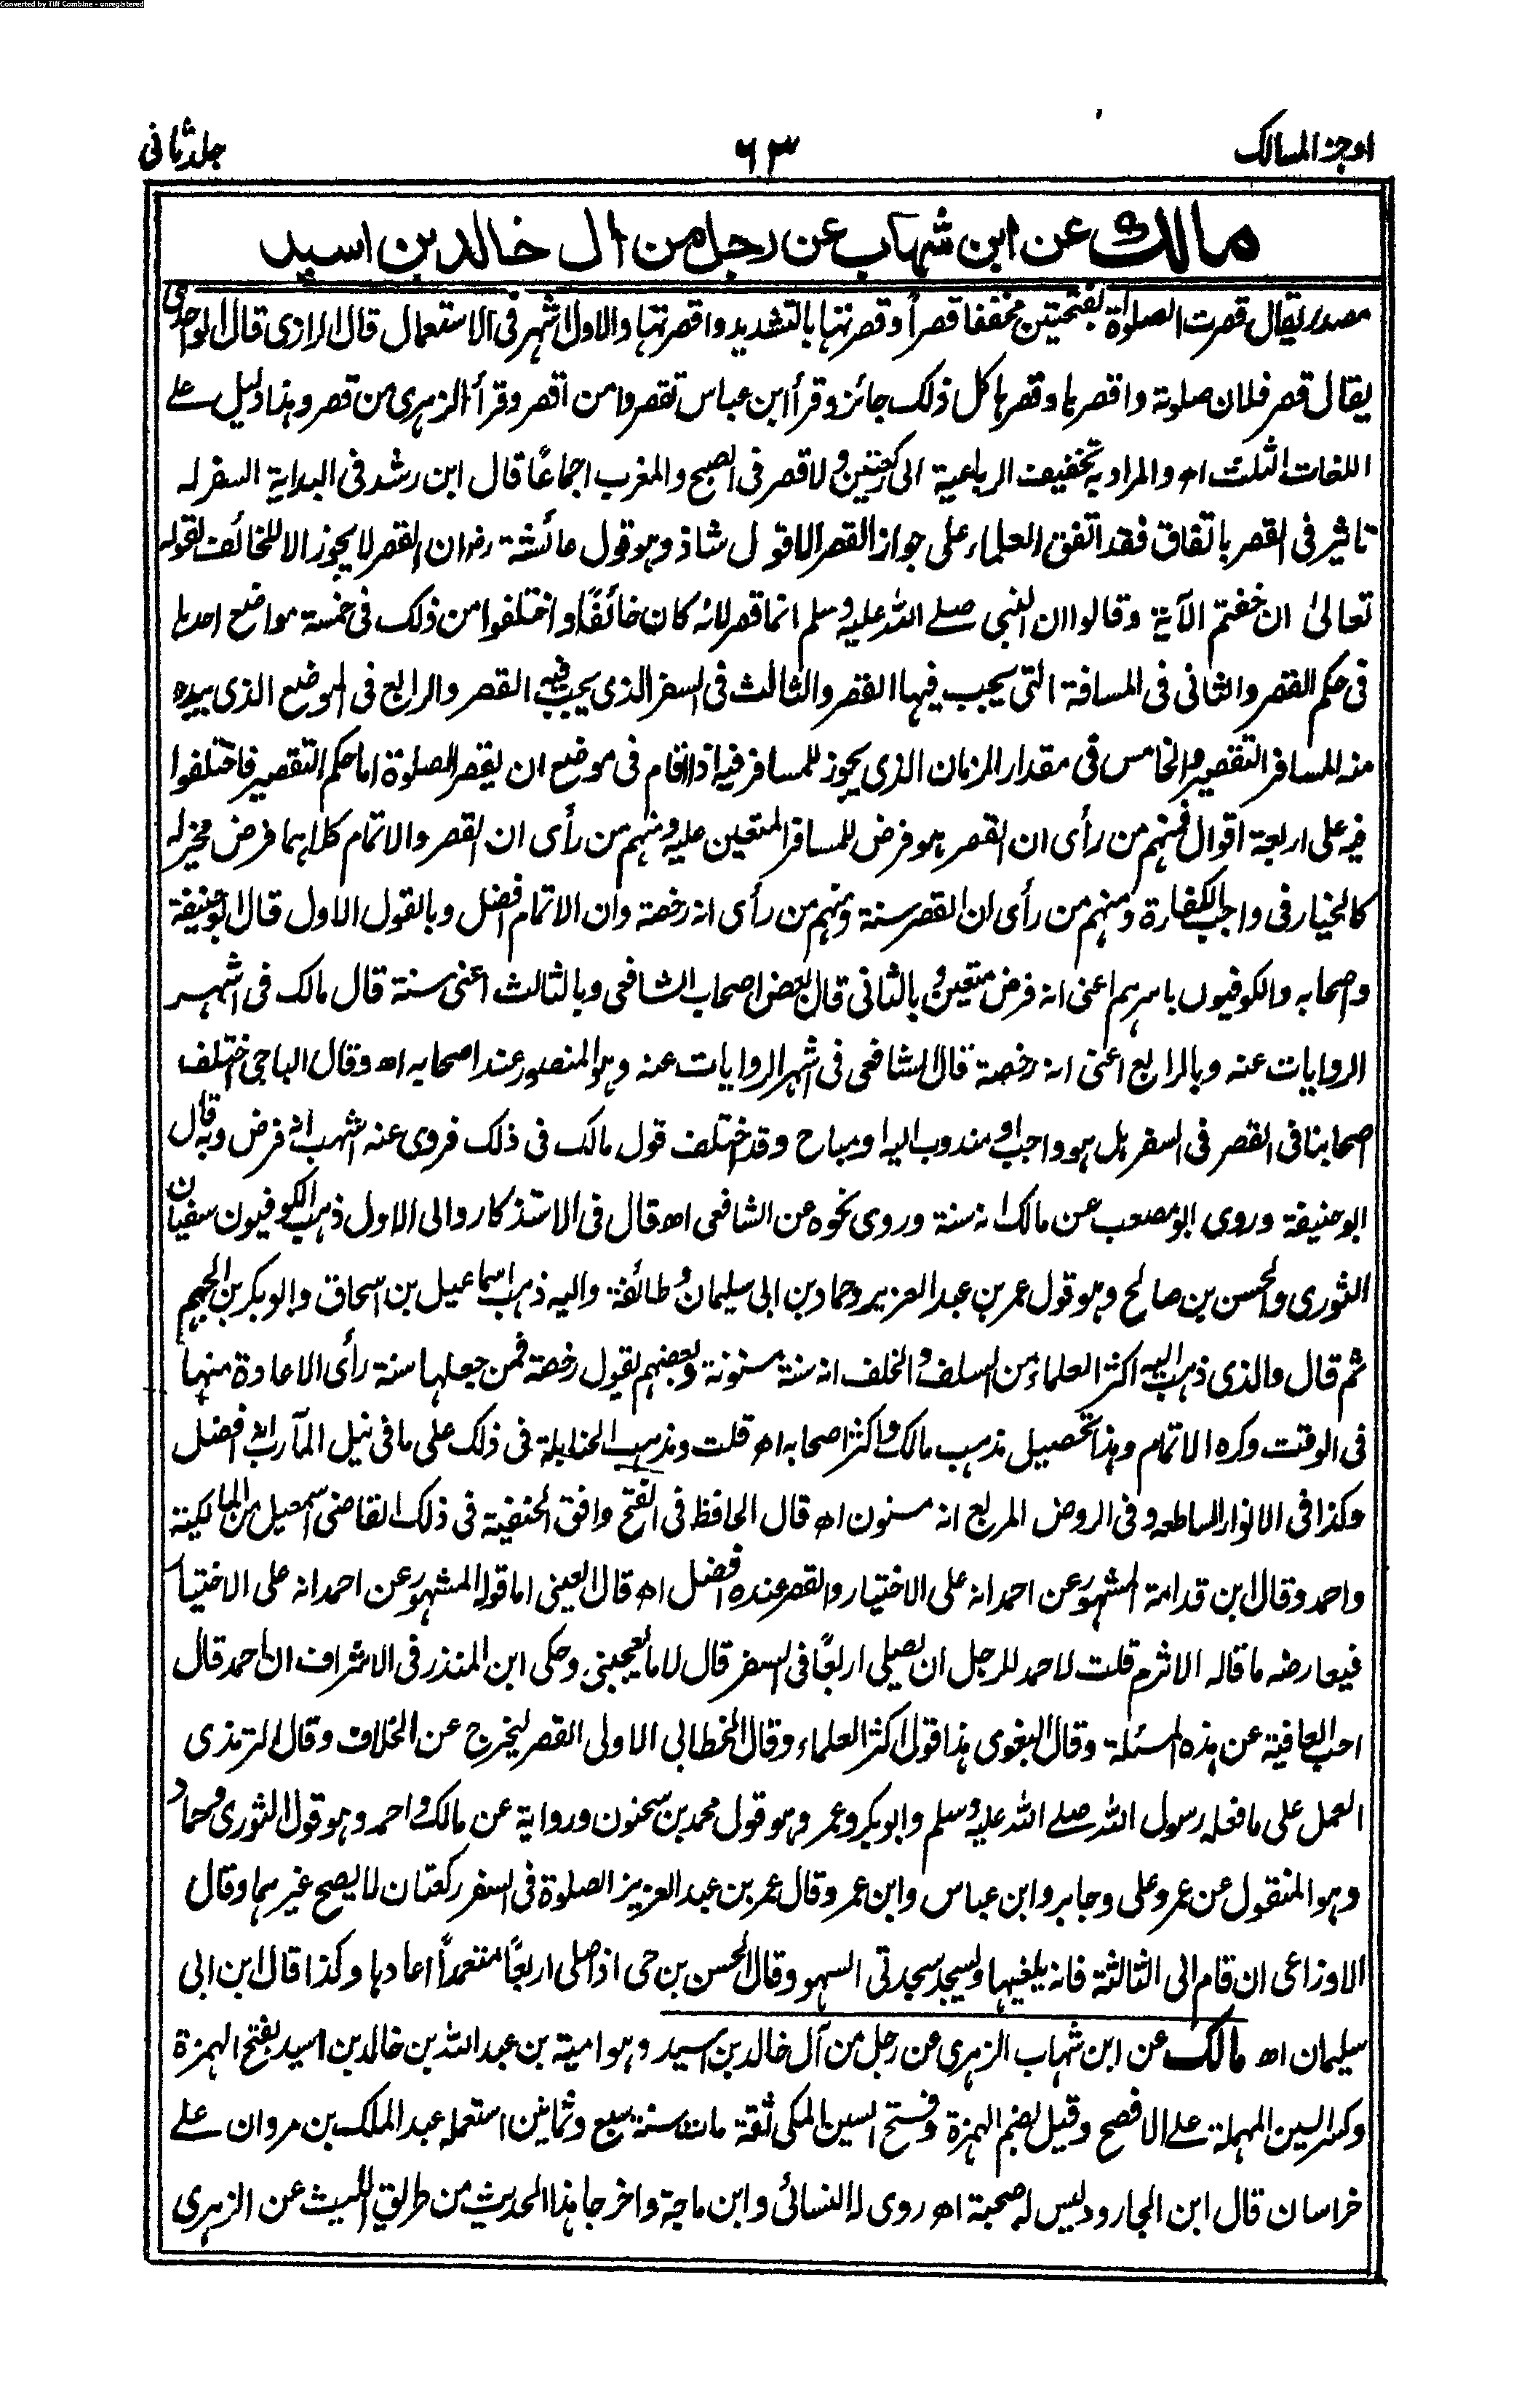 Converted by Tiff Combine - unregistered
اوجز المسالك ۶۳ جلد ثانی
مالك عن ابن شهاب عن رجل من ال خالد بن اسيد
مصدر يقال قصرت الصلوة بفتحتين مخففا قصراً وقصرتها بالتشديد واقصرتها والاول اشهر فى الاستعمال قال الرازى قال الواحدى
يقال قصر فلان صلوته واقصرها وقصرها كل ذلك جائز وقرأ ابن عباس تقصروا من اقصر وقرأ الزهرى من قصر وهذا دليل على
اللغات الثلث اھ والمراد به تخفيف الرباعية الى ركعتين ولا قصر فى الصبح والمغرب اجماعًا قال ابن رشد فى البداية السفر له
تاثير فى القصر باتفاق فقد اتفق العلماء على جواز القصر الا قول شاذ وهو قول عائشة رض ان القصر لا يجوز الا للخائف لقوله
تعالىٰ ان خفتم الآية وقالوا ان النبى صلے الله عليه وسلم انما قصر لانه كان خائفًا واختلفوا من ذلك فى خمسة مواضع احدها
فى حكم القصر والثانى فى المسافة التى يجب فيها القصر والثالث فى السفر الذى يجب فيه القصر والرابع فى الموضع الذى يبدء
منه المسافر التقصير والخامس فى مقدار الزمان الذى يجوز للمسافر فيه اذا اقام فى موضع ان يقصر الصلوة اما حكم التقصير فاختلفوا
فيه على اربعة اقوال فمنهم من رأى ان القصر هو فرض للمسافر المتعين عليه ومنهم من رأى ان القصر والاتمام كلاهما فرض مخير له
كالخيار فى واجب الكفارة ومنهم من رأى ان القصر سنة ومنهم من رأى انه رخصة وان الاتمام افضل وبالقول الاول قال ابو حنيفة
واصحابه والكوفيون باسرهم اعنى انه فرض متعين وبالثانى قال بعض اصحاب الشافعى وبالثالث اعنى سنة قال مالك فى اشهر
الروايات عنه وبالرابع اعنى انه رخصة قال الشافعى فى اشهر الروايات عنه وهو المنصور عند اصحابه اھ وقال الباجى اختلف
اصحابنا فى القصر فى السفر هل هو واجب او مندوب اليه او مباح وقد اختلف قول مالك فى ذلك فروى عنه اشهب انه فرض وبه قال
ابو حنيفة وروى ابو مصعب عن مالك انه سنة وروى نحوه عن الشافعى اھ قال فى الاستذكار والى الاول ذهب الكوفيون سفيان
الثورى والحسن بن صالح وهو قول عمر بن عبد العزيز وحماد بن ابى سليمان وطائفة واليه ذهب اسماعيل بن اسحاق وابو بكر بن الجهم
ثم قال والذى ذهب اليه اكثر العلماء من السلف والخلف انه سنة مسنونة وبعضهم يقول رخصة فمن جعلها سنة رأى الاعادة منها
فى الوقت وكره الاتمام وهذا تحصيل مذهب مالك واكثر اصحابه اھ قلت ومذهب الحنابلة فى ذلك على ما فى نيل المآرب انه افضل
وكذا فى الانوار الساطعه وفى الروض المربع انه مسنون اھ قال الحافظ فى الفتح وافق الحنفية فى ذلك القاضى اسمعيل من المالكية
واحمد وقال ابن قدامة المشهور عن احمد انه على الاختيار والقصر عنده افضل اھ قال العينى اما قوله المشهور عن احمد انه على الاختيار
فيعارضه ما قاله الاثرم قلت لاحمد للرجل ان يصلى اربعًا فى السفر قال لا ما يعجبنى وحكى ابن المنذر فى الاشراف ان احمد قال
احب العافية عن هذه المسئلة وقال البغوى هذا قول اكثر العلماء وقال الخطابى الاولى القصر ليخرج عن الخلاف وقال الترمذى
العمل على ما فعله رسول الله صلے الله عليه وسلم وابو بكر وعمر وهو قول محمد بن سحنون ورواية عن مالك واحمد وهو قول الثورى وحماد
وهو المنقول عن عمر وعلى وجابر وابن عباس وابن عمر وقال عمر بن عبد العزيز الصلوة فى السفر ركعتان لا يصح غيرهما وقال
الاوزاعى ان قام الى الثالثة فانه يلغيها ويسجد سجدتى السهو وقال الحسن بن حى اذا صلى اربعًا متعمداً اعادها وكذا قال ابن ابى
سليمان اھ مالك عن ابن شهاب الزهرى عن رجل من آل خالد بن اسيد وهو امية بن عبد الله بن خالد بن اسيد بفتح الهمزة
وكسر السين المهملة على الافصح وقيل بضم الهمزة وفتح السين المكى ثقة مات سنة سبع وثمانين استعمله عبد الملك بن مروان على
خراسان قال ابن الجارود ليس له صحبة اھ روى له النسائى وابن ماجة واخرجا هذا الحديث من طريق الليث عن الزهرى